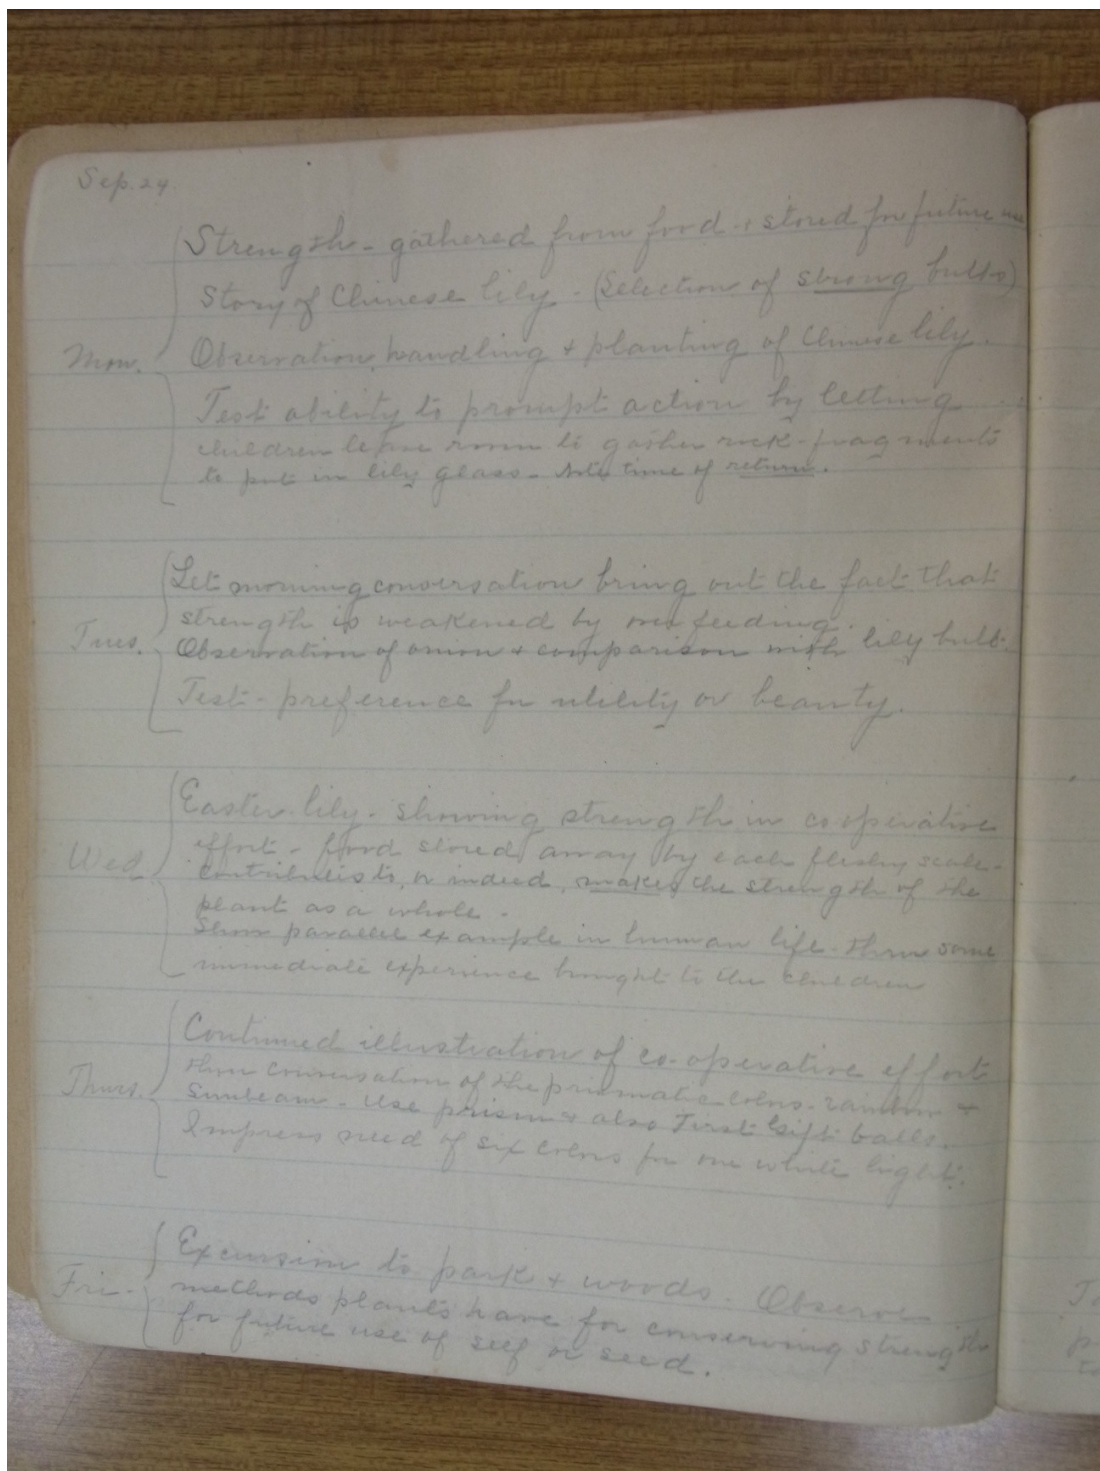 Sep. 24
Strength - gathered from food & stored for future use
Story of Chinese lily - (Selection of strong bulbs)
Mon. Observation, handling & planting of Chinese lily.
Test ability to prompt action by letting
children leave room to gather rock-fragments
to put in lily glass - Note time of return.
Let morning conversation bring out the fact that
strength is weakened by over feeding.
Tues. Observation of onion & comparison with lily bulb.
Test - preference for utility or beauty.
Easter lily - showing strength in cooperative
Wed. effort - food stored away by each fleshy scale -
contributes to, or indeed, makes the strength of the
plant as a whole.
Show parallel example in human life - thru some
immediate experience brought to the children
Continued illustration of co-operative effort
Thurs. thru conversation of the prismatic colors - rainbow &
sunbeam - Use prism & also First Gift balls.
Impress need of six colors for one white light.
Excursion to park & woods. Observe
Fri. methods plants have for conserving strength
for future use of self or seed.